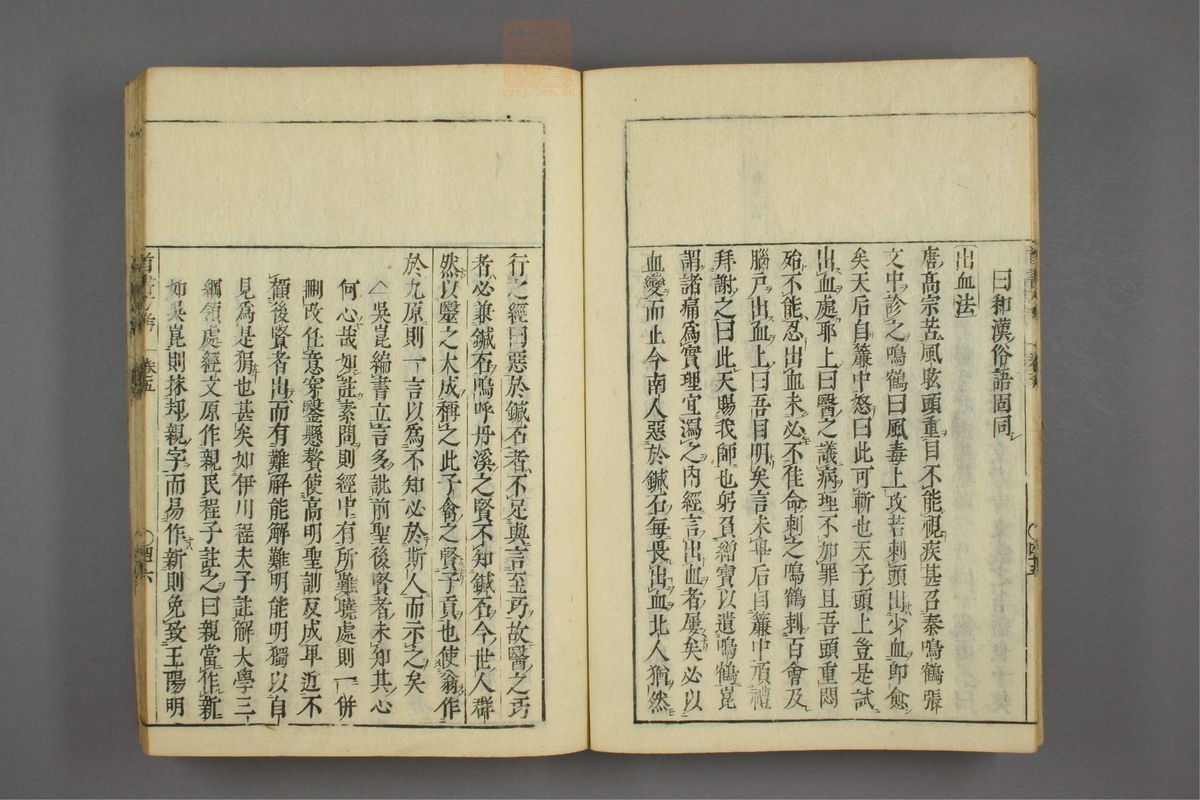 曰和漢俗語固同
出血法
唐高宗苦風眩頭重目不能視疾甚召秦鳴鶴張
文中診之鳴鶴曰風毒上攻若刺頭出少血即愈
矣天后自簾中怒曰此可斬也天子頭上豈是試
出血處耶上曰醫之議病理不加罪且吾頭重悶
殆不能忍出血未必不佳命刺之鳴鶴刺百會及
腦戶出血上曰吾目明矣言未畢后自簾中頂禮
拜謝之曰此天賜我師也躬負繒寶以遺鳴鶴崑
謂諸痛爲實理宜瀉之內經言出血者屢矣必以
血變而止今南人惡於鍼石每畏出血北人猶然
行之經曰惡於鍼石者不足與言至巧故醫之巧
者必兼鍼石嗚呼丹溪之賢不知鍼石今世人群
然以醫之大成稱之此子禽之賢子貢也使翁作
於九原則一言以爲不知必於斯人而示之矣
△吳崑編書立言多訛前聖後賢者未知其心
何心哉如註素問則經中有所難曉處則一併
刪改任意穿鑿懸贅使高明聖訓反成卑近不
顧後賢者出而有難解能解難明能明獨以自
見爲是狷也甚矣如伊川程夫子註解大學三
綱領處經文原作親民程子註之曰親當作新
如吳崑則抹却親字而易作新則免致王陽明
卷五
四十六